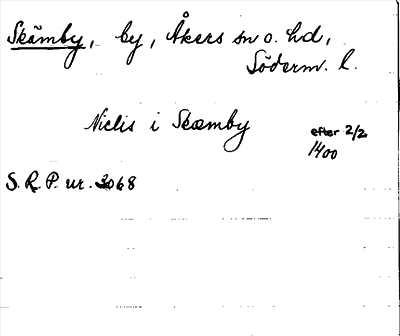 Skämby, by, Åkers sn o. hd,
Söderm. l.
Niclis i Skæmby
efter 2/2
1400
S. R. P. nr. 3068